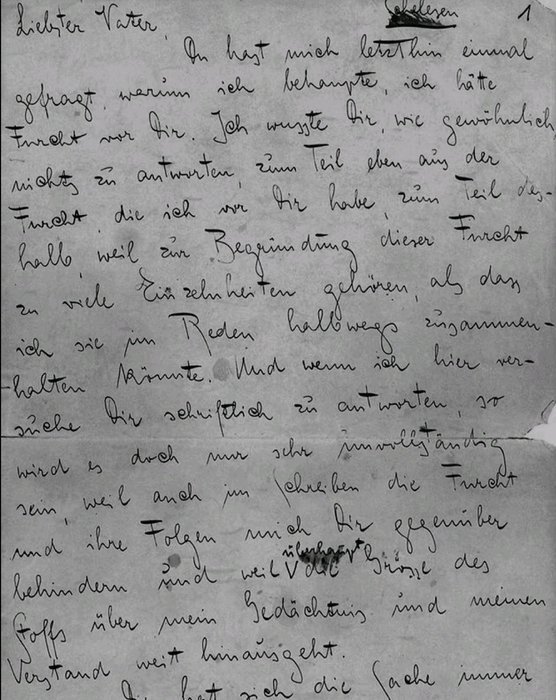 Schelesen 1
Liebster Vater,
Du hast mich letzthin einmal
gefragt, warum ich behaupte, ich hätte
Furcht vor Dir. Ich wusste Dir, wie gewöhnlich,
nichts zu antworten, zum Teil eben aus der
Furcht, die ich vor Dir habe, zum Teil des-
halb, weil zur Begründung dieser Furcht
zu viele Einzelnheiten gehören, als dass
ich sie im Reden halbwegs zusammen-
halten könnte. Und wenn ich hier ver-
suche Dir schriftlich zu antworten, so
wird es doch nur sehr unvollständig
sein, weil auch im Schreiben die Furcht
und ihre Folgen mich Dir gegenüber
behindern und weil überhaupt die Grösse des
Stoffs über mein Gedächtnis und meinen
Verstand weit hinausgeht.
Dir hat sich die Sache immer